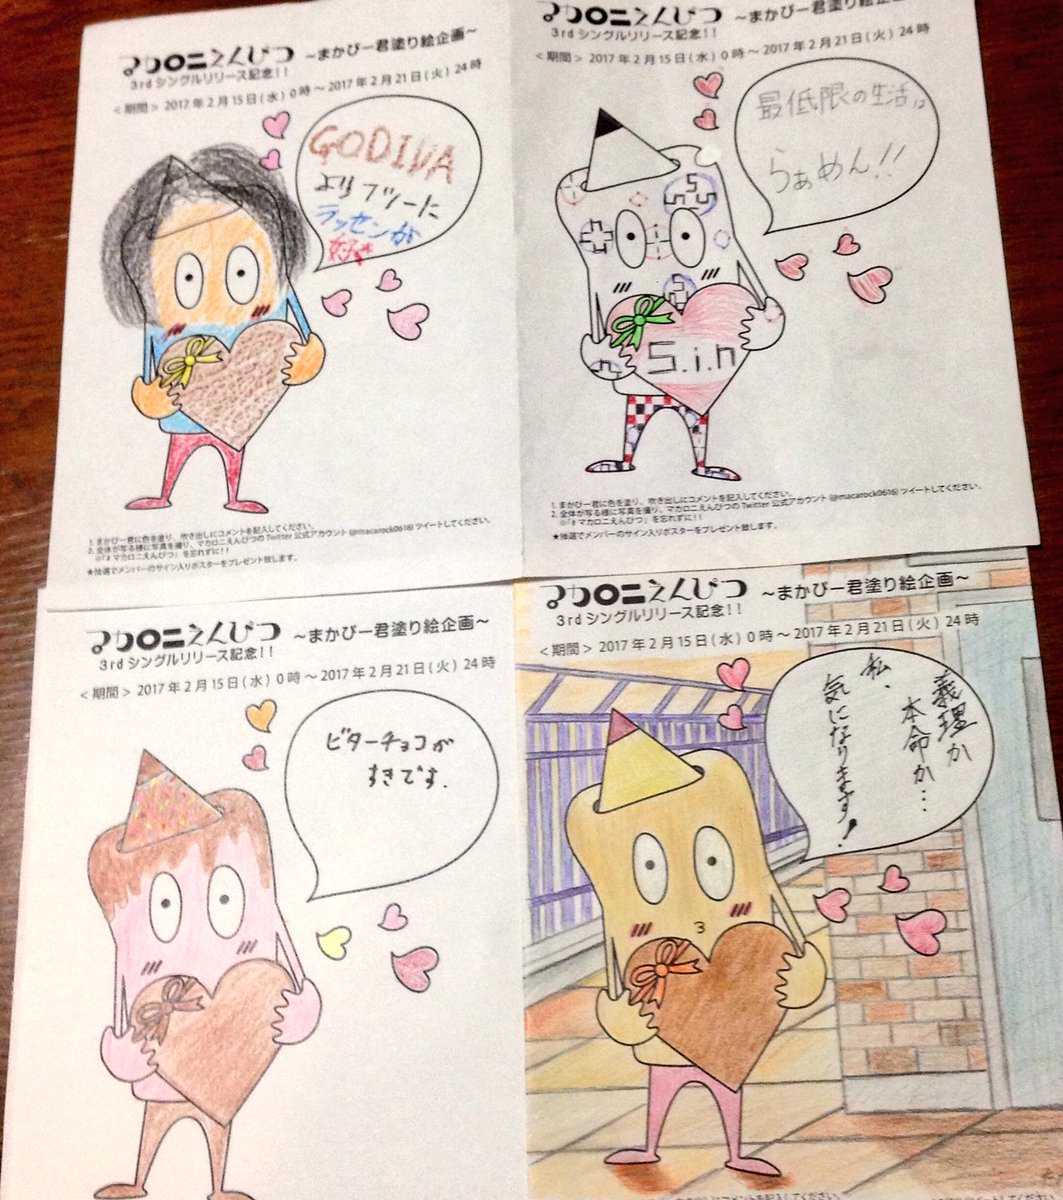 マカロニえんぴつ ～まかぴー君塗り絵企画～
3rdシングルリリース記念!!
<期間> 2017年2月15日(水)0時～2017年2月21日(火)24時
GODIVA
よりフツーに
ラッセンが
好き
1. まかぴー君に色を塗り、吹き出しにコメントを記入してください。
2. 全体が写る様に写真を撮り、マカロニえんぴつのTwitter公式アカウント(@macarock0616)ツイートしてください。
※「#マカロニえんぴつ」を忘れずに!!
★抽選でメンバーのサイン入りポスターをプレゼント致します。
マカロニえんぴつ ～まかぴー君塗り絵企画～
3rdシングルリリース記念!!
<期間> 2017年2月15日(水)0時～2017年2月21日(火)24時
最低限の生活は
らぁめん!!
S.i.n
1. まかぴー君に色を塗り、吹き出しにコメントを記入してください。
2. 全体が写る様に写真を撮り、マカロニえんぴつのTwitter公式アカウント(@macarock0616)ツイートしてください。
※「#マカロニえんぴつ」を忘れずに!!
★抽選でメンバーのサイン入りポスターをプレゼント致します。
マカロニえんぴつ ～まかぴー君塗り絵企画～
3rdシングルリリース記念!!
<期間> 2017年2月15日(水)0時～2017年2月21日(火)24時
ビターチョコが
すきです.
マカロニえんぴつ ～まかぴー君塗り絵企画～
3rdシングルリリース記念!!
<期間> 2017年2月15日(水)0時～2017年2月21日(火)24時
義理か
本命か…
私、
気になります!